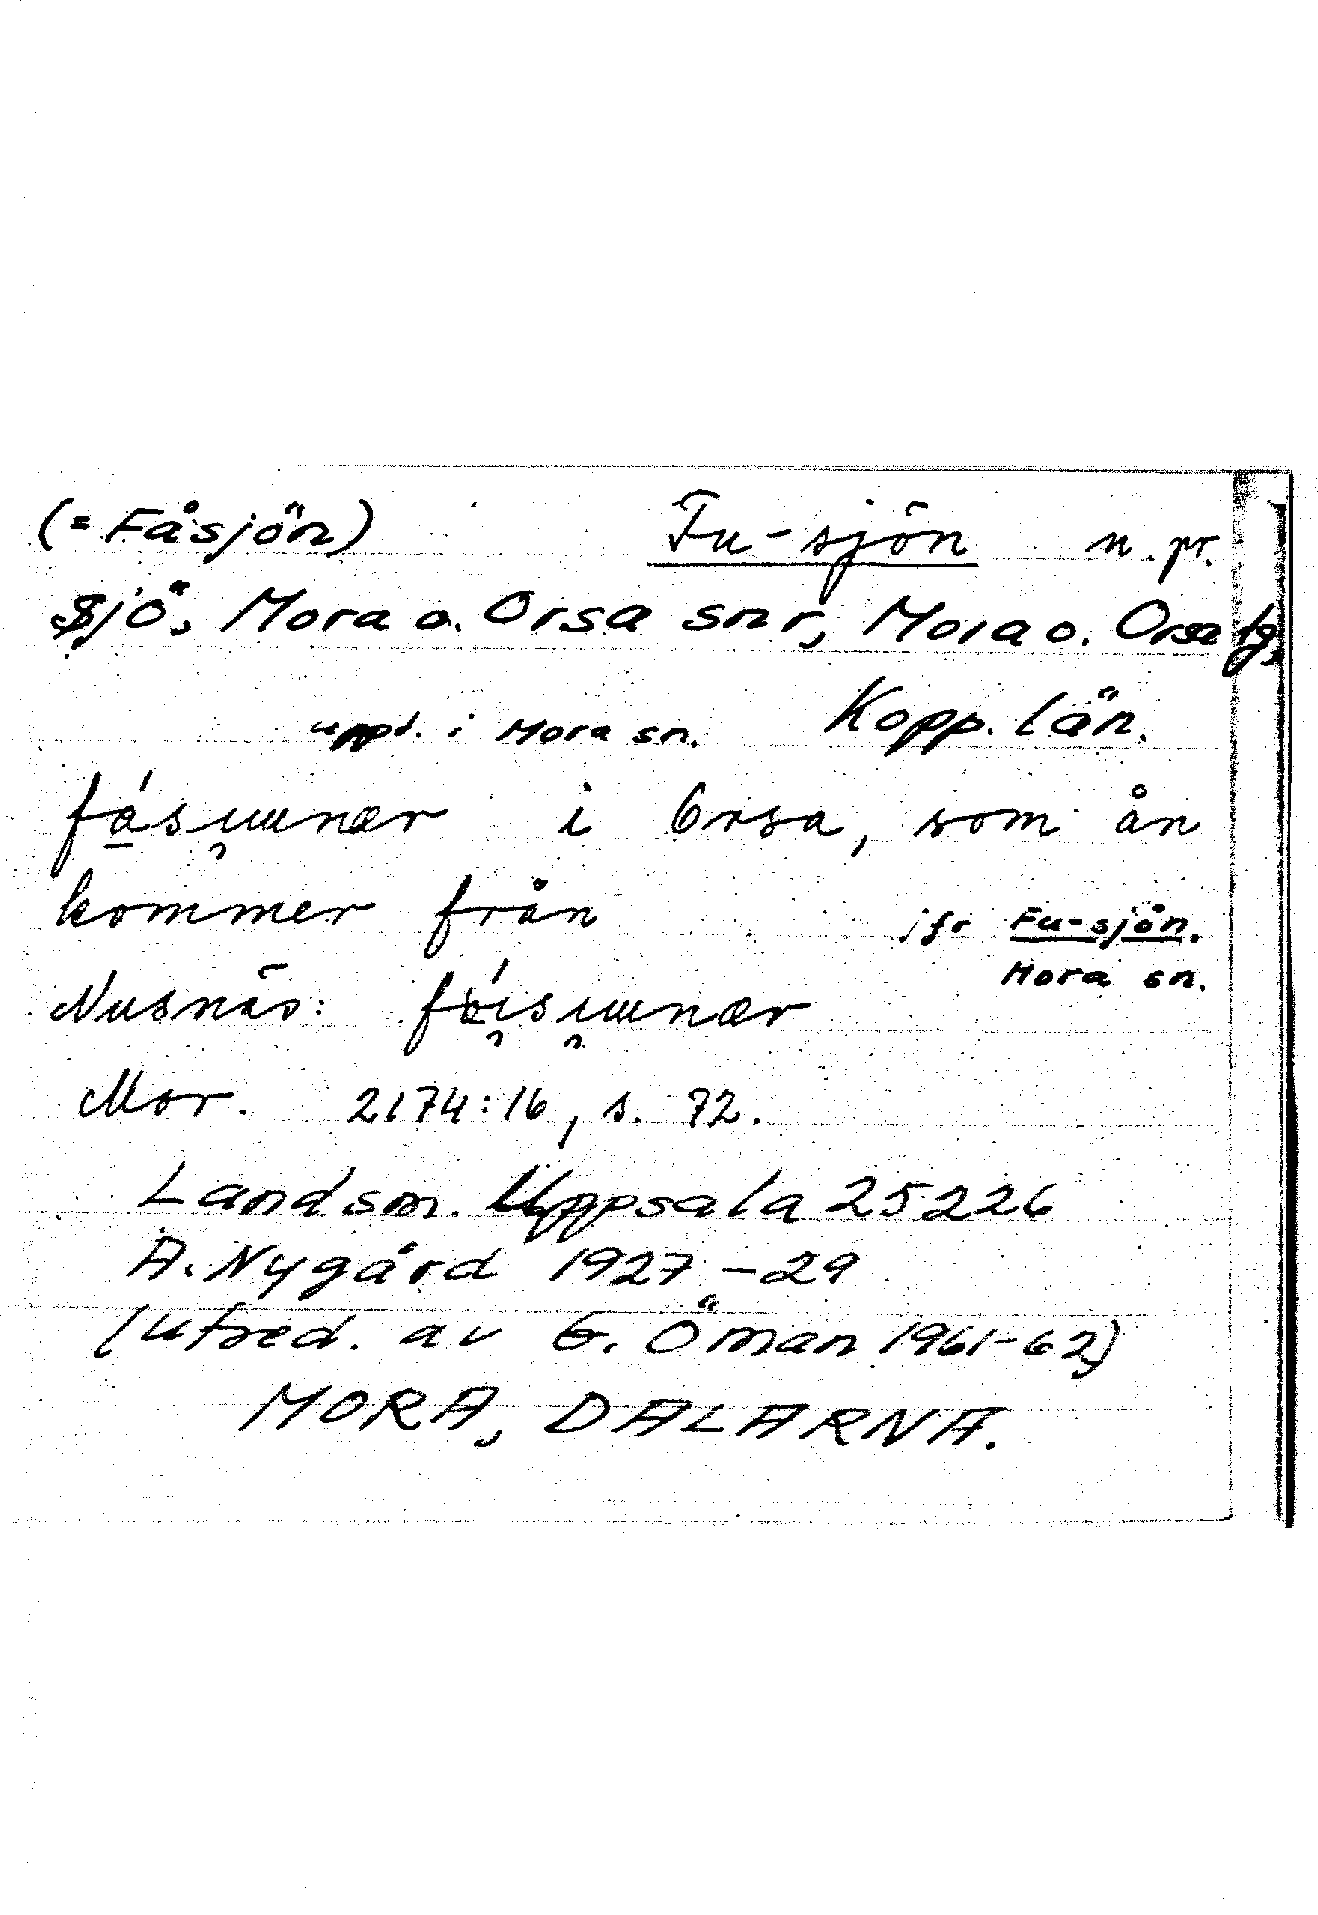 (= Fåsjön) Fu-sjön n. pr.
Sjö, Mora o. Orsa snr, Mora o. Orsa tg,
uppt. i Mora sn. Kopp. län.
i Orsa, som ån
kommer från jfr Fu-sjön.
Mora sn.
Nusnäs:
Mor. 2174:16, s. 72.
Landsm. Uppsala 25226
A. Nygård 1927-29
(utred. av G. Öman 1961-62)
MORA, DALARNA.